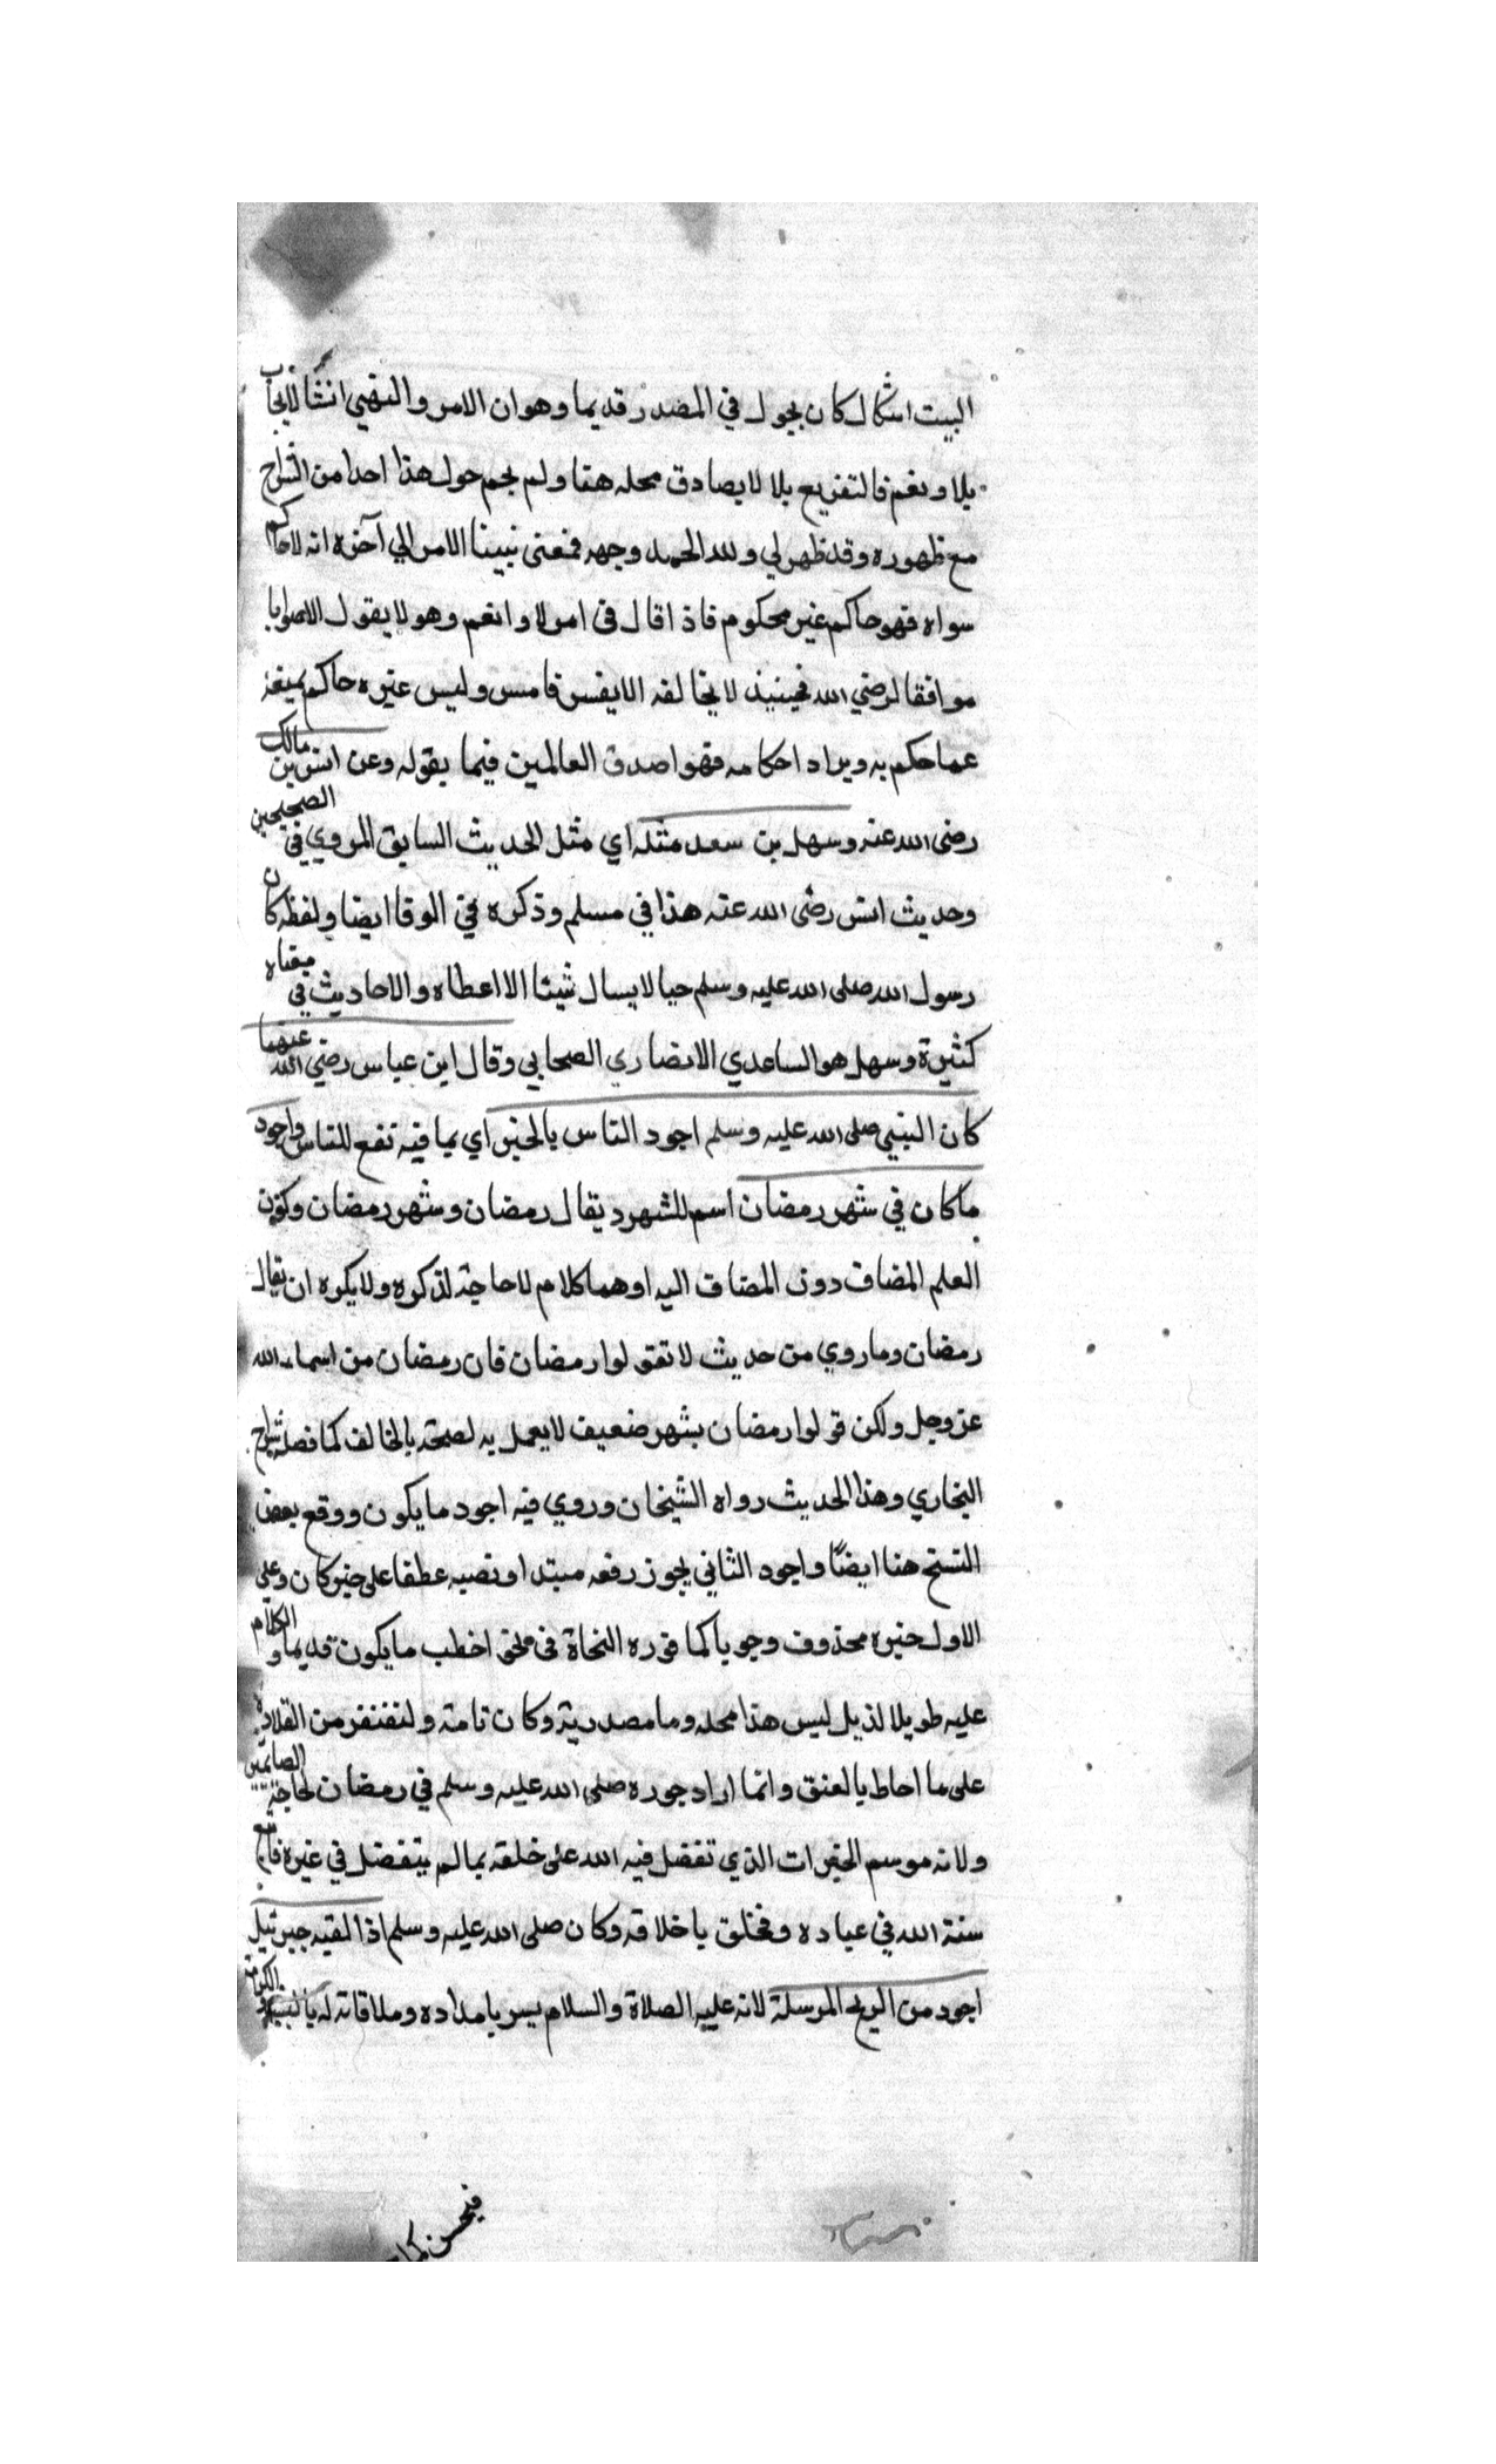 البيت اشكال كان يجول في المصدر قديما وهو ان الامر والنهي انشا لايجاب
بلا ونعم فالتفريع بلا لا يصادق محله هنا ولم يحم حول هذا احدا من الشراح
مع ظهوره وقد ظهر لي ولله الحمد وجهه فمعنى نبينا الامر الي آخره انه لا حاكم
سواه فهو حاكم غير محكوم فاذا قال في امر لا وانعم وهو لا يقول الا صوابا
موافقا لرضي الله فحينيذ لا يخالفه الا بقسر قاسر وليس غيره حاكم يمنعه
عما حكم به ويراد احكامه فهو اصدق العالمين فيما يقوله وعن انس بن مالك
رضى الله عنه وسهل بن سعد مثله اي مثل الحديث السابق المروي في الصحيحين
وحديث انس رضى الله عنه هذا في مسلم وذكره في الوفا ايضا ولفظه كان
رسول الله صلى الله عليه وسلم حيا لا يسال شيئا الا اعطاه والاحاديث في معناه
كثيرة وسهل هو الساعدي الانصاري الصحابي وقال ابن عباس رضي الله عنهما
كان النبي صلى الله عليه وسلم اجود الناس بالخير اي بما فيه نفع للناس واجود
ما كان في شهر رمضان اسم للشهر ويقال رمضان وشهر رمضان وكون
العلم المضاف دون المضاف اليه او هما كلام لا حاجة لذكره ولا يكره ان يقال
رمضان وما روي من حديث لا تقولوا رمضان فان رمضان من اسماء الله
عز وجل ولكن قولوا رمضان بشهر ضعيف لا يعمل به لصحة بالمخالف كما فصله شراح
البخاري وهذا الحديث رواه الشيخان وروي فيه اجود ما يكون ووقع بعض
النسخ هنا ايضًا واجود الثاني يجوز رفعه مبتدا ونصبه عطفا على خبر كان وعلى
الاول خبره محذوف وجوبا كما قرره النحاة في اخطب ما يكون قديما والكلام
عليه طويل الذيل ليس هذا محله وما مصدرية وكان تامة ولتفتقر من القلادة
على ما احاط بالعنق وانما اراد جوده صلى الله عليه وسلم في رمضان لحاجة الصائمين
ولانه موسم الخيرات الذي تفضل فيه الله على خلقه بما لم يتفضل في غيره فاتبع
سنة الله في عباده وتخلق باخلاقه وكان صلى الله عليه وسلم اذا لقيه جبرئيل
اجود من الريح المرسلة لانه عليه الصلاة والسلام يسر بامداده وملاقاته له
فيحسن